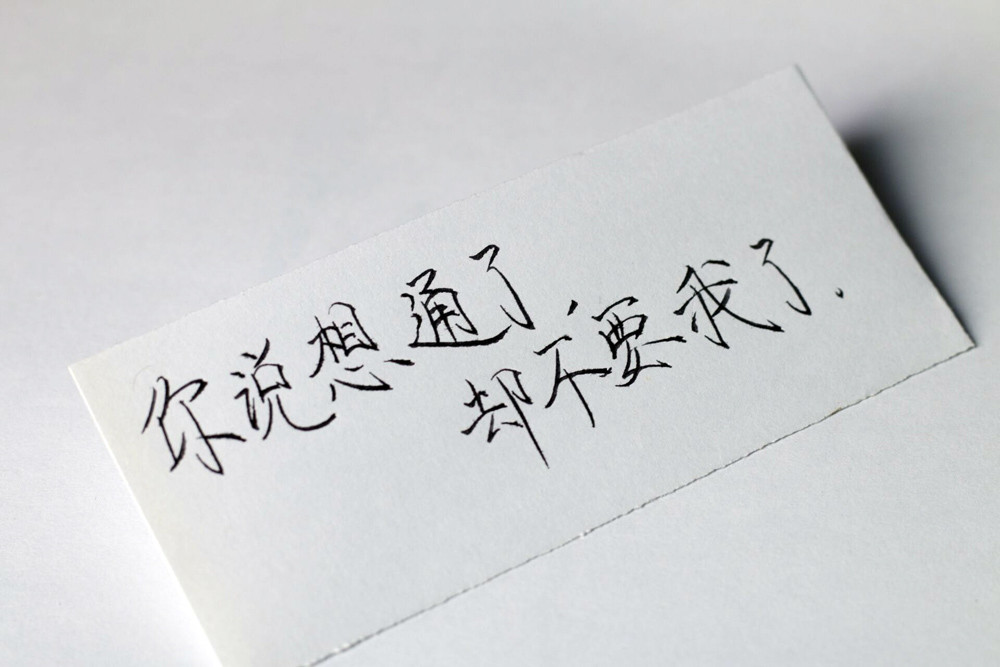 你说想通了
却不要我了.